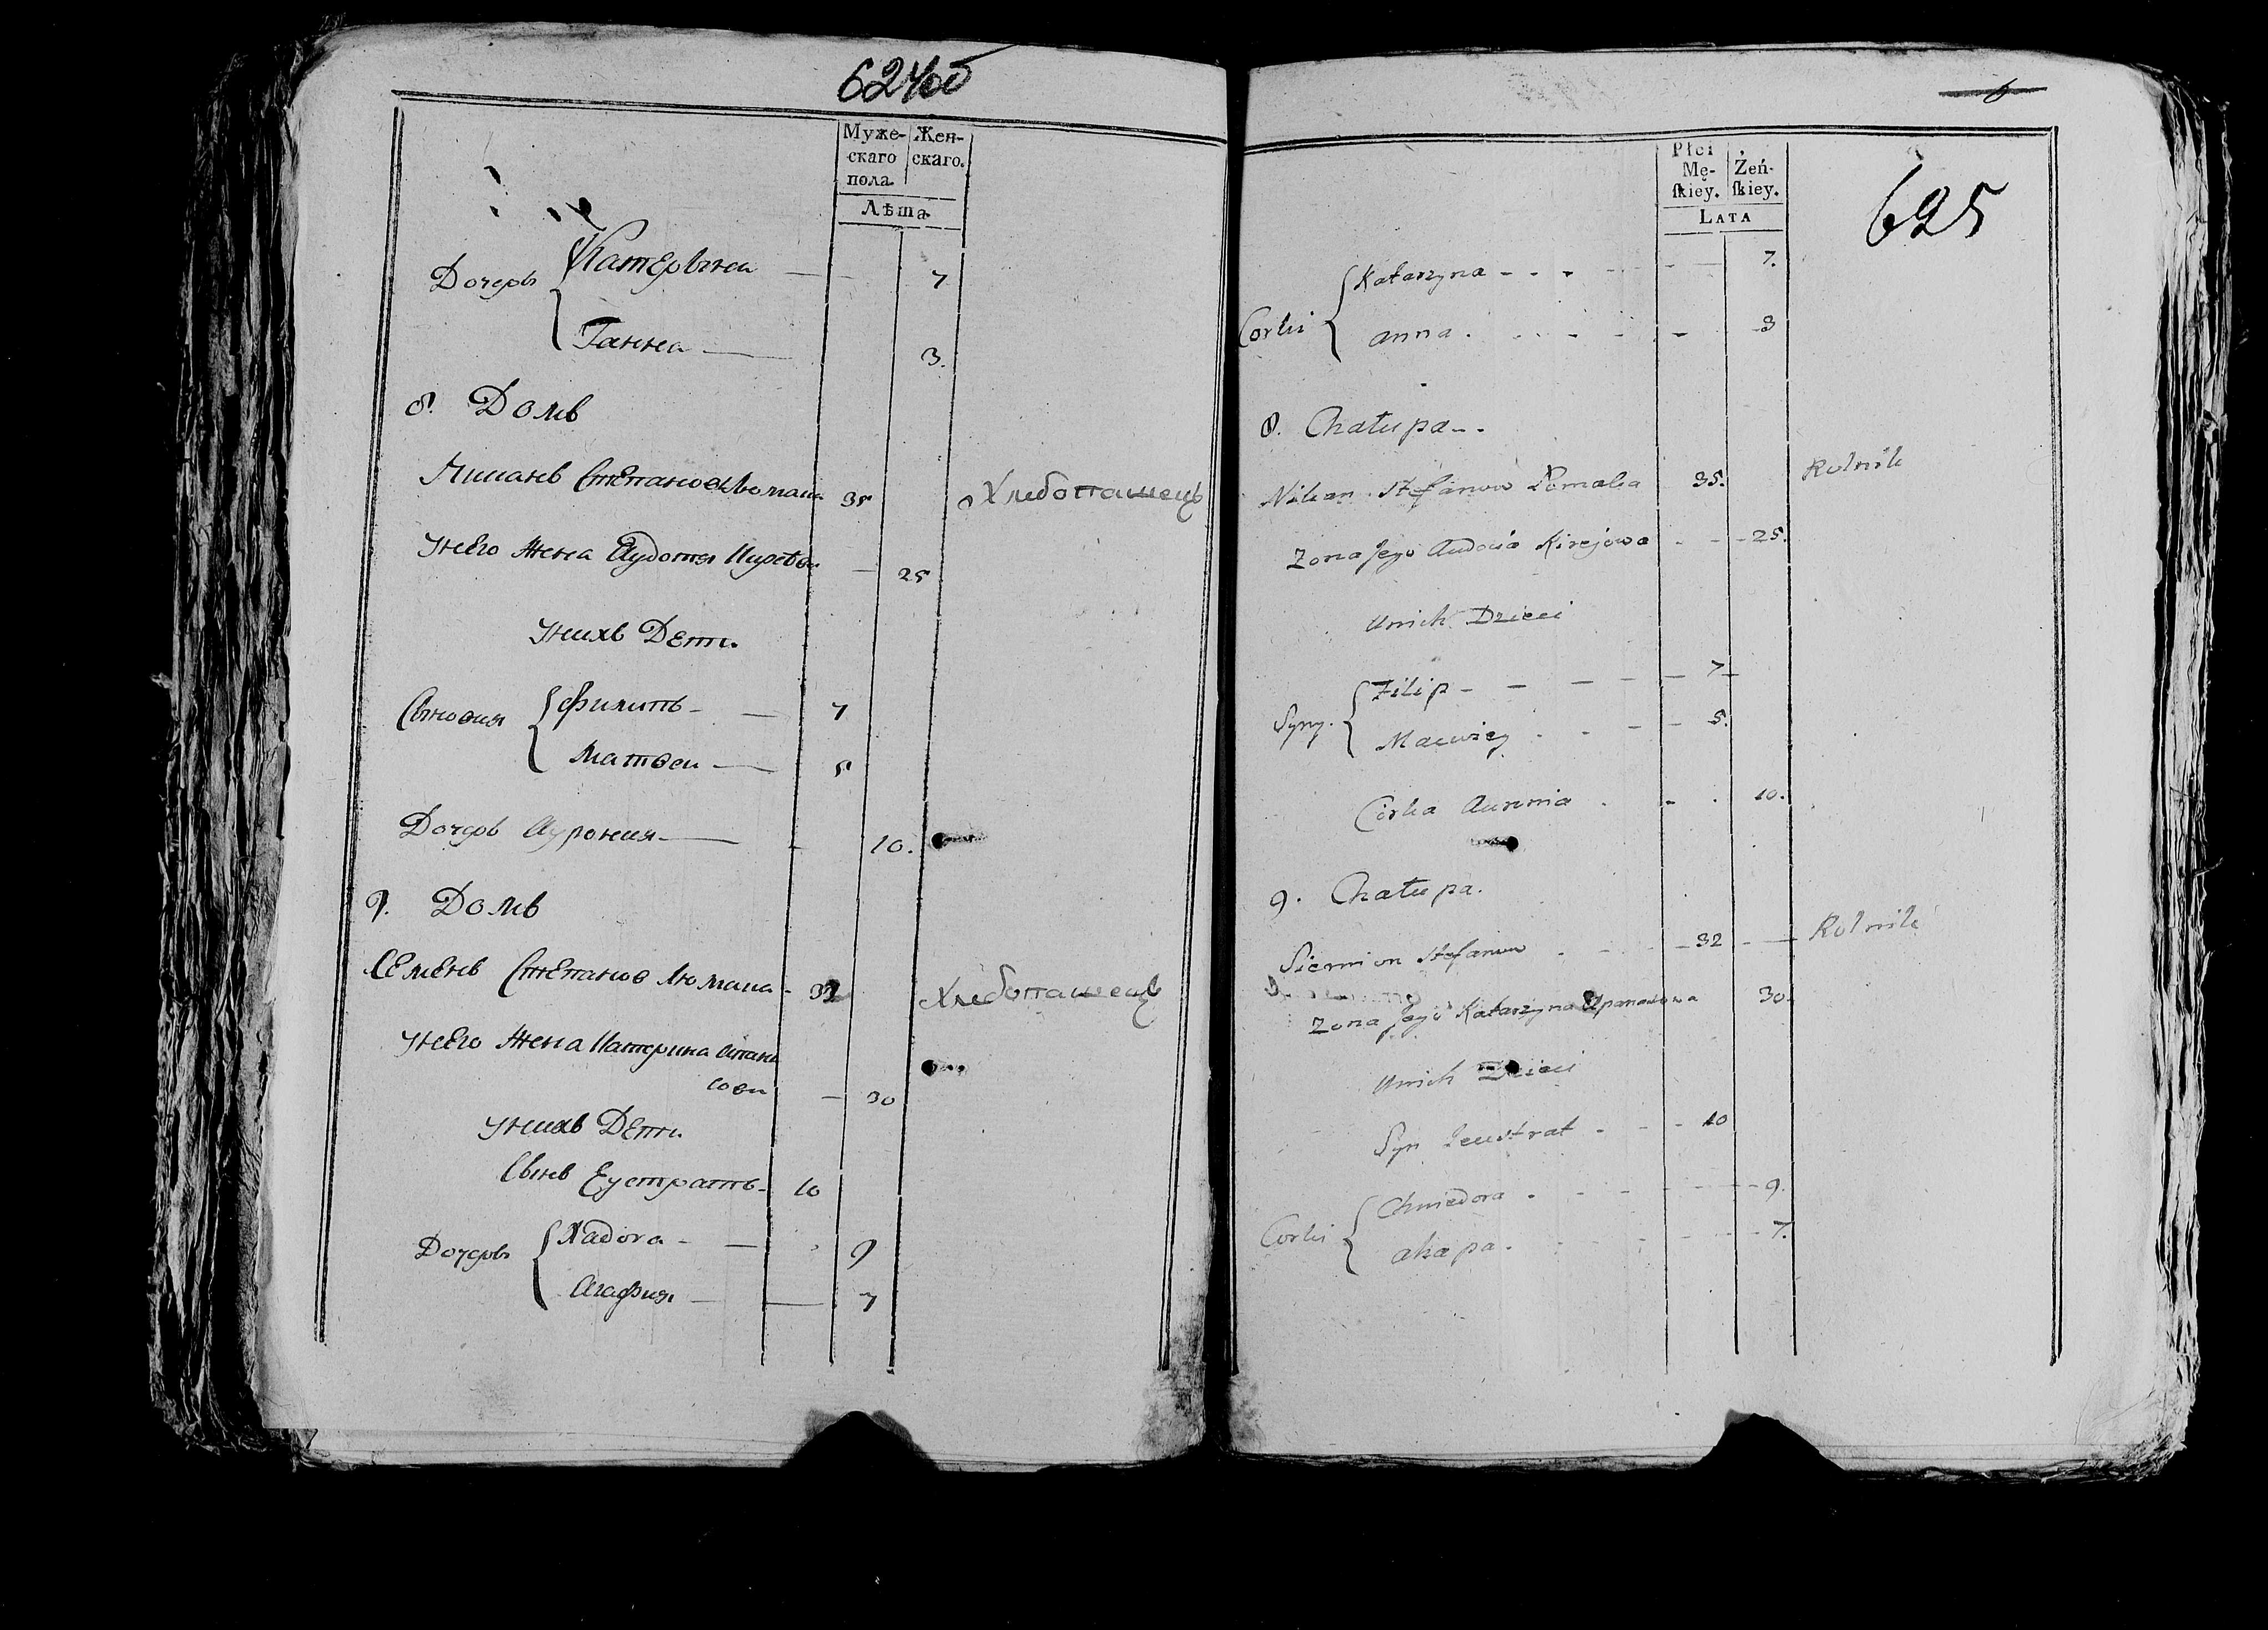 624об
Муже-
скаго
пола.
Жен-
скаго.
Лѣта
Дочерь
Катерына 7
Ганна 3.
8. Домъ
Степанов 35 Хлебопашецъ
Унего жена Аудотя 25
Унихъ Дети.
Сыновия
Филипъ 7
Матвеи 5
Дочерь Аурония 10.
9. Домъ
Семенъ Степанов 32 Хлебопашецъ
Унего жена Катерина Апана
сова 30
Унихъ Дети
Сынъ Еустратъ 10
Дочерь
Xadora 9
Агафия 7
6
625
Płci
Mę-
ſkiey.
Żeń-
ſkiey.
LATA
Corki
Katarzyna 7.
anna 3
8. Chałupa
Nikan Stefanow 35. Rolnik
Zona Jego Audocia Kirejowa 25.
Unich Dzieci
Syny.
Filip 7
Maciey 5.
Corka Aurinia 10.
9. Chałupa.
Siemion Stefanow 32 Rolnik
Zona Jego Katarzyna Apanasowa 30.
Unich Dzieci
Syn Jeustrat 10
Corki
Chwiedora 9.
ahapa 7.